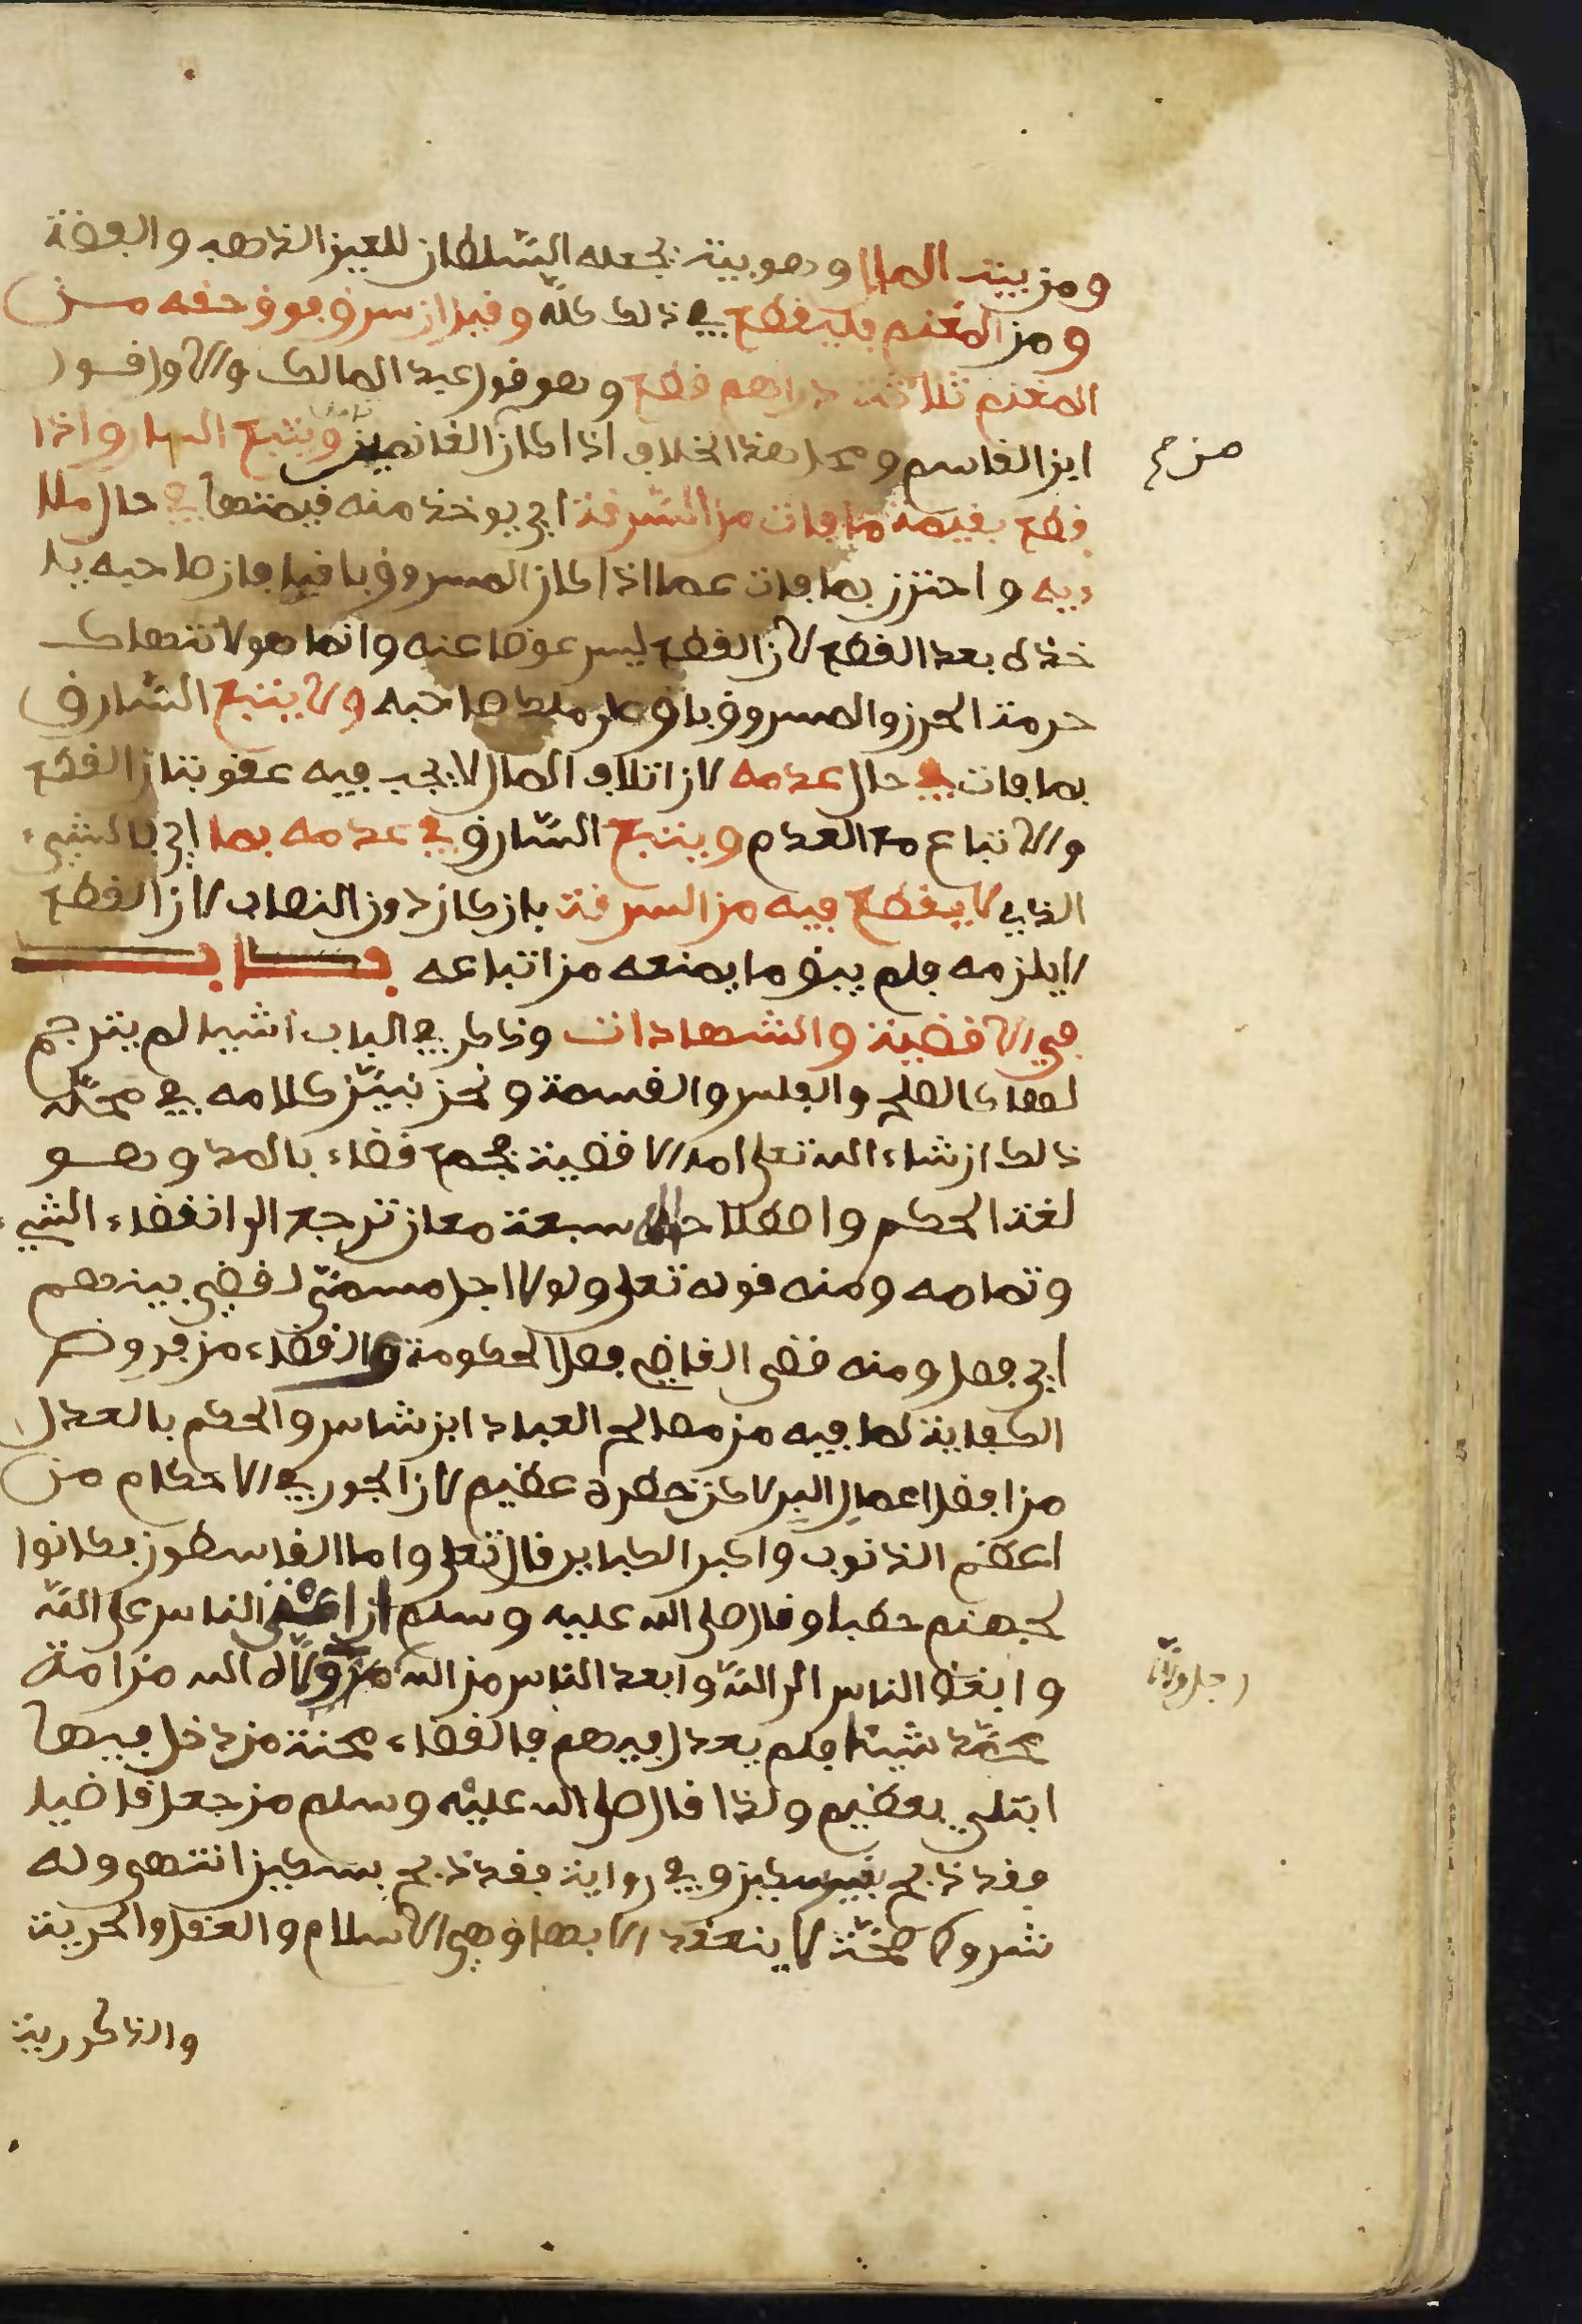 ومن بيت المال وهو بيت يجعله السّلطان للعين الذهب والفضة
ومن المغنم فليقطع في ذلك كلّه وقيل إن سرق فوق حقه من
المغنم ثلاثة دراهم قطع وهو قول عبد المالك والاول قول
ابن القاسم ومحل هذا الخلاف اذا كان الغانمين ويتبع السارق اذا
قطع بقيمة ما فات من السّرقة اي يوخذ منه قيمتها في حال ملا
ىه واحترز بما فات عما اذا كان المسروق باقيا فان صاحبه يا
خذه بعد القطع لان القطع ليس عوضا عنه وانما هو لانتهاك
حرمة الحرز والمسروق باق على ملك صاحبه ولا يتبع السّارق
بما فات في حال عدمه لان اتلاف المال لا يجب فيه عقوبتان القطع
والاتباع مع العدم ويتبع السّارق في عدمه بما اي بالشيء
الذي لا يقطع فيه من السرقة بان كان دون النصاب لان القطع
لا يلزمه فلم يبق ما يمنعه من اتباعه باب
في الاقضية والشهادات وذكر في الباب اشيا لم يترجم
لها كالصلح والفلس والقسمة ونحن نبيّن كلامه في محلّه
ذلك ان شاء الله تعلى اما الاقضية جمع قضاء بالمد وهو
لغة الحكم واصطلاحا سبعة معان ترجع الى انقضاء الشيء
وتمامه ومنه قوله تعلى ولولا اجل مسمّى لقضي بينهم
اي فصل ومنه قضى القاضي فصل الحكومة والقضاء من فروض
الكفاية لما فيه من مصالح العباد ابن شاس والحكم بالعدل
من افضل اعمال البر لاكن خطره عظيم لان الجور في الاحكام من
اعظم الذنوب واكبر الكباير قال تعلى واما القاسطون فكانوا
لجهنم حطبا وقال صلى الله عليه وسلم ان اعتى الناس على الله
وابغض الناس الى الله وابعد الناس من الله من ولّاه الله من امة
محمّد شيئا فلم يعدل فيهم فالقضاء محنة من دخل فيها
ابتلي بعظيم ولذا قال صلى الله عليه وسلم من جعل قاضيا
فقد ذبح بغير سكين وفي رواية فقد ذبح بسكين انتهى وله
شروط صحّة لا ينعقد الا بها وهي الاسلام والعقل والحرية
والذكرية
رجل ولّا